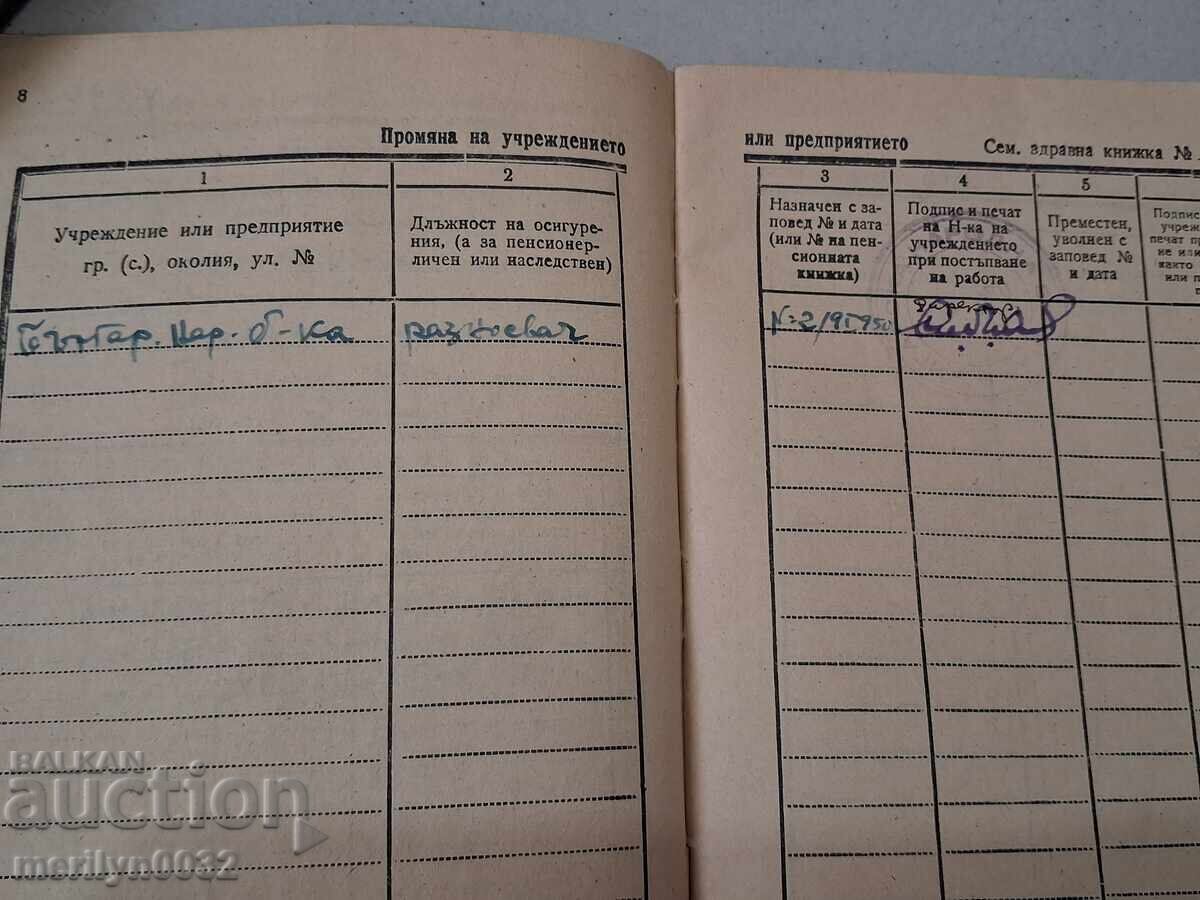 8
Промяна на учреждението
1
2
Учреждение или предприятие
гр. (с.), околия, ул. №
Длъжност на осигуре-
ния, (а за пенсионер-
личен или наследствен)
Нар. б-ка
разносвач
или предприятието
Сем. здравна книжка №
3
4
5
Назначен с за-
повед № и дата
(или № на пен-
сионната
книжка)
Подпис и печат
на Н-ка на
учреждението
при постъпване
на работа
Преместен,
уволнен с
заповед №
и дата
Подпис
учреж
печат пр
не или
както
или п
№ 2/9I950
директор:
BALKAN
auction
merilyn0032